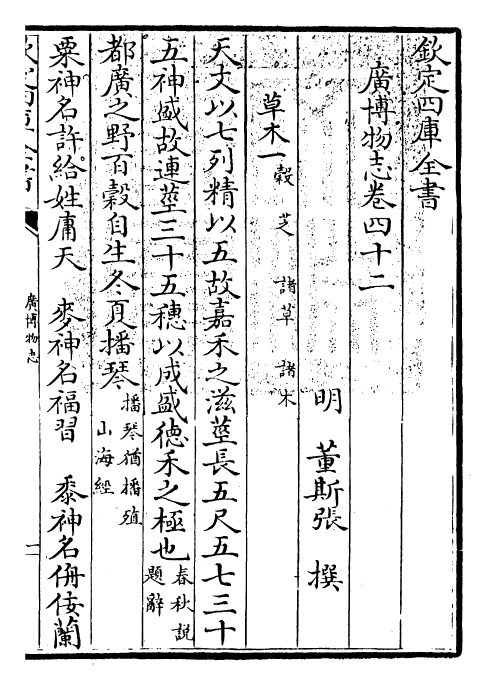 欽定四庫全書
廣博物志卷四十二
明 董斯張 撰
草木一 穀 芝 諸草 諸木
天文以七列精以五故嘉禾之滋莖長五尺五七三十
五神盛故連莖三十五穗以成盛德禾之極也 春秋說題辭
都廣之野百穀自生冬夏播琴 播琴猶播殖 山海經
粟神名許給姓庸天 麥神名福習 黍神名倂倭蘭
廣博物志
一